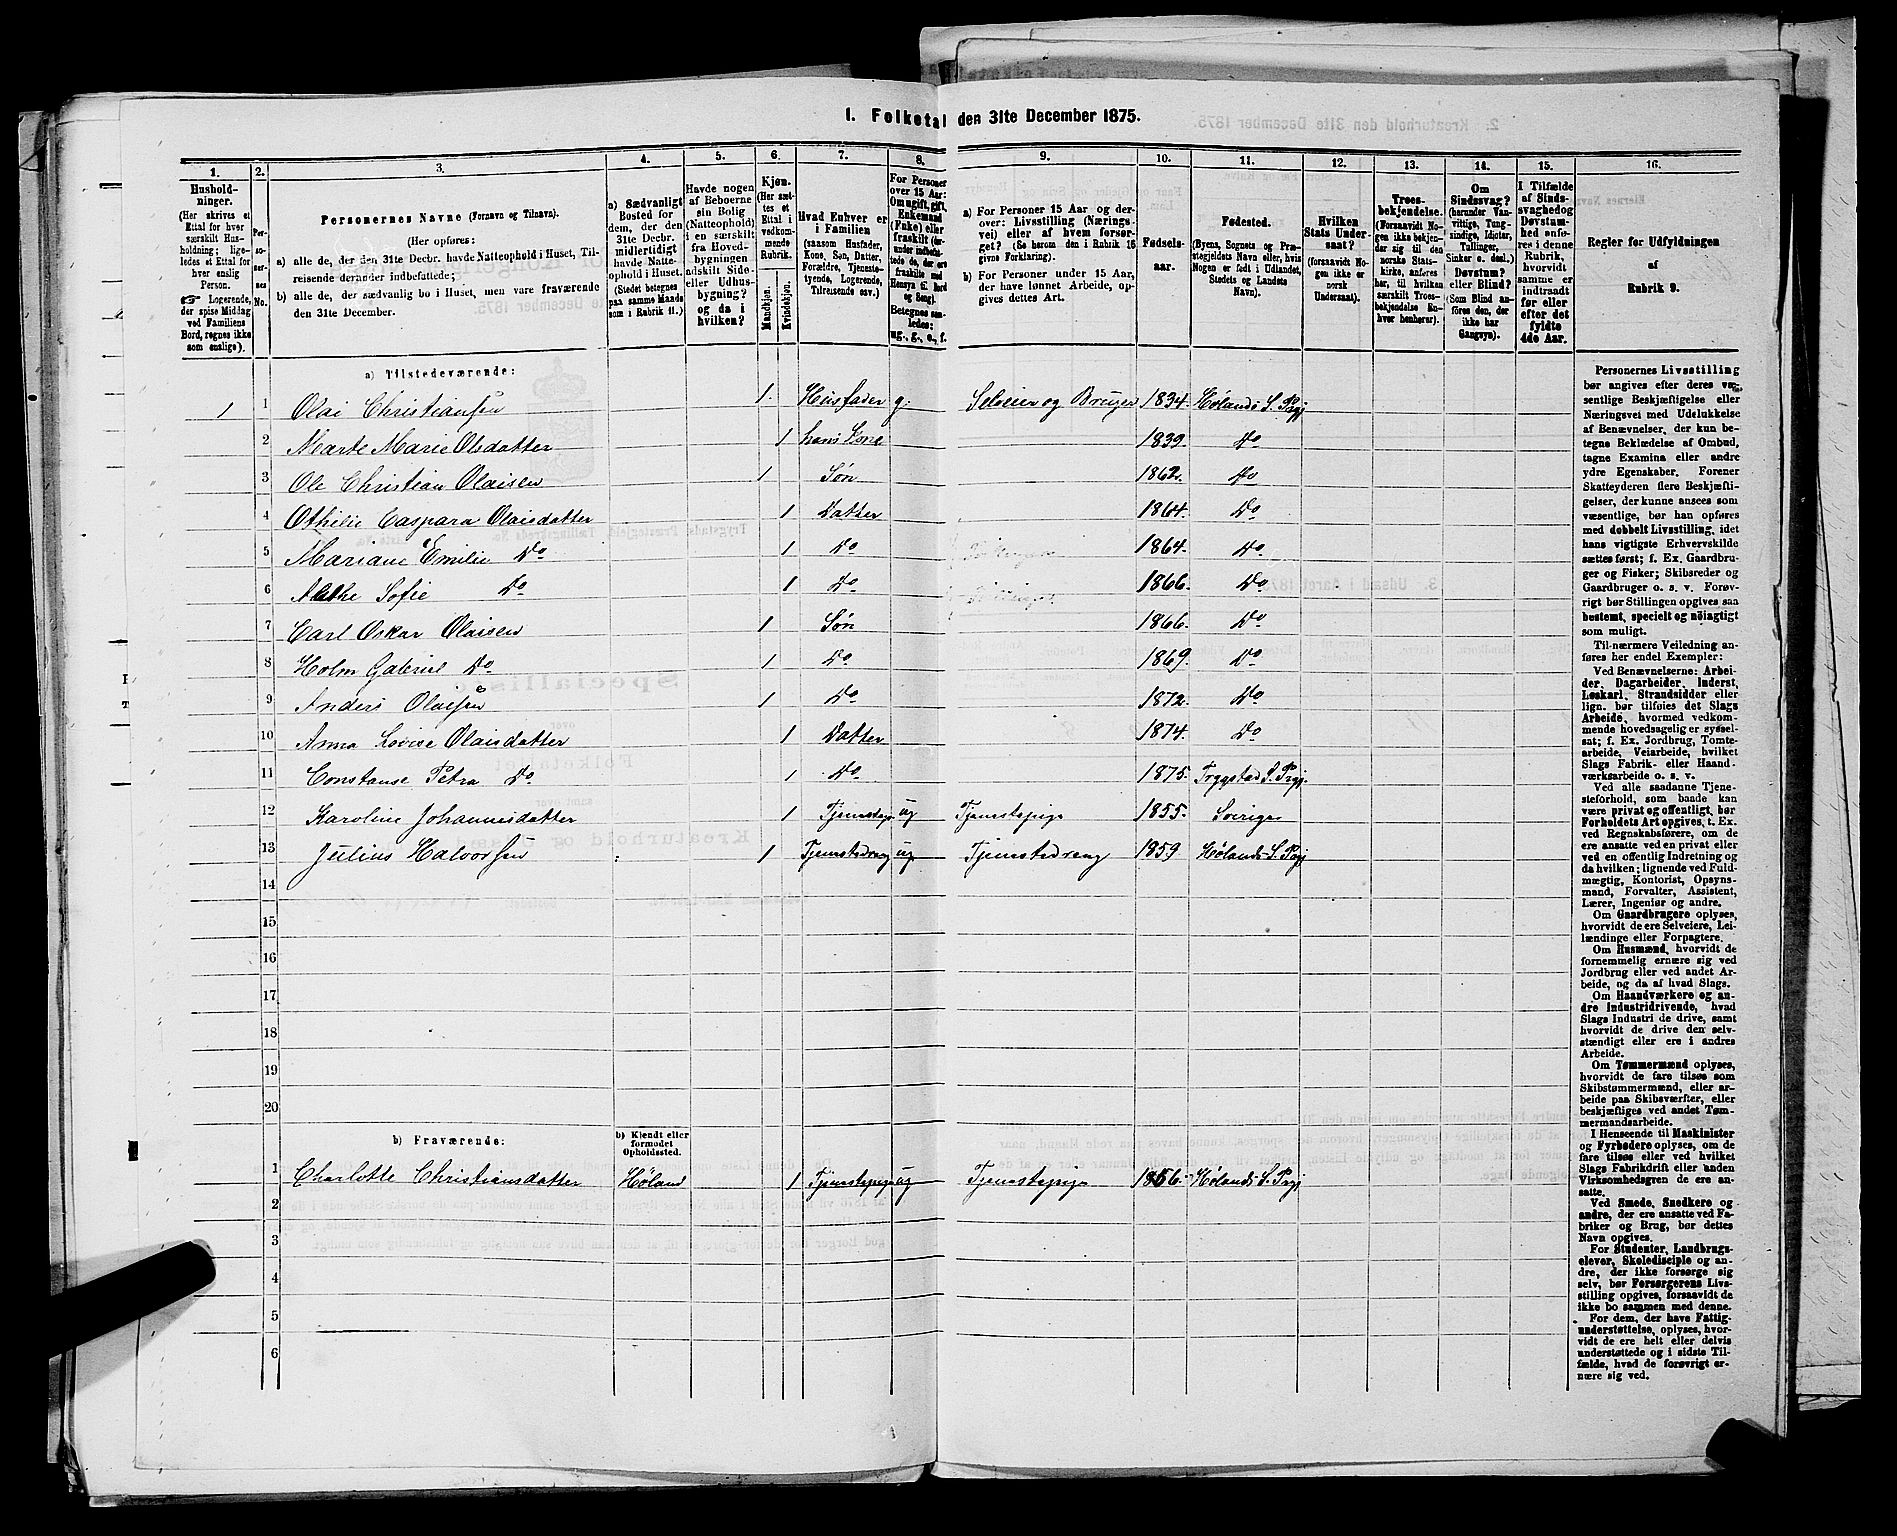 1. Folketal den 31te December 1875.
1. 2. 3. 4. 5. 6. 7. 8. 9. 10. 11. 12. 13. 14. 15. 16.
Hushold-
ninger.
(Her skrives et
Ettal for hver
særskilt Hus-
holdning; lige-
ledes et Ettal for
hver enslig
Person.
Logerende,
der spise Middag
ved Familiens
Bord, regnes ikke
som enslige).
Personernes Navne (Fornavn og Tilnavn).
(Her opføres:
a) alle de, der den 31te Decbr. havde Natteophold i Huset, Til-
reisende derunder indbefattede;
b) alle de, der sædvanlig bo i Huset, men vare fraværende
den 31te December.
a) Sædvanligt
Bosted for
dem, der den
31te Decbr.
midlertidigt
havde Natte-
ophold i Huset.
(Stedet betegnes
paa samme Maade
som i Rubrik 11.)
Havde nogen
af Beboerne
sin Bolig
(Natteophold)
i en særskilt
fra Hoved-
bygningen
adskilt Side-
eller Udhus-
bygning?
og da i
hvilken?
Kjøn.
(Her sæt-
tes et
Ettal i
vedkom-
mende
Rubrik.
Mandkjøn.
Kvindekjøn.
Hvad Enhver er
i Familien
(saasom Husfader,
Kone, Søn, Datter,
Forældre, Tjeneste-
tyende, Logerende,
Tilreisende osv.)
For Personer
over 15 Aar:
Om ugift, gift,
Enkemand
(Enke) eller
fraskilt
Betegnes saa-
ledes:
ug., g., e., f.
a) For Personer 15 Aar og der-
over: Livsstilling (Nærings-
vei) eller af hvem forsør-
get? (Se herom den i Rubrik 16
givne Forklaring).
b) For Personer under 15 Aar,
der have lønnet Arbeide, op-
gives dettes Art.
Fødsels-
aar.
Fødested.
(Byens, Sognets og Præ-
stegjeldets Navn eller, hvis
Nogen er født i Udlandet,
Stedets og Landets
Navn).
Hvilken
Stats Under-
saat?
(forsaavidt No-
gen ikke er
norsk
Undersaat).
Troes-
bekjendelse.
(Forsaavidt No-
gen ikke bekjen-
der sig til den
norske Stats-
kirke, anføres
her, til hvilken
særskilt Troes-
bekjendelse En-
hver henhører).
Om
Sindssvag?
(herunder Van-
vittige, Tung-
sindige, Idioter,
Tullinger,
Sinker o. desl.)
Døvstum?
eller Blind?
(Som Blind an-
føres den, der
ikke har
Gangsyn).
I Tilfælde
af Sinds-
svaghed og
Døvstum-
hed anfø-
res i denne
Rubrik,
hvorvidt
samme er
indtraadt
før eller
efter det
fyldte
4de Aar.
Regler for Udfyldningen
af
Rubrik 9.
a) Tilstedeværende:
1 1 Olai Christiansen 1. Husfader g. Seleier og Bruger 1834. Hølands S. Prgj
2 Marte Marie Olsdatter 1 hans Kone 1839. Do
3 Ole Christian Olaisen 1 Søn 1862. Do
4 Othilie Caspara Olaisdatter 1 Datter 1864. Do
5 Mariane Emilie Do 1 Do 1864. Do
6 Sofie Do 1 Do 1866. Do
7 Carl Oskar Olaisen 1 Søn 1866. Do
8 Holm Gabriel Do 1 Do 1869. Do
9 Anders Olaisen 1 Do 1872. Do
10 Anna Lovise Olaisdatter 1 Datter 1874. Do
11 Constanse Petra Do 1 Do 1875. Trygstad S. Prgj.
12 Karoline Johannesdatter 1 Tjenestepige ug Tjenestepige 1855. Sverige
13 Julius Halvorsen 1 Tjenestedreng ug. Tjenestedreng 1859 Hølands S. Prgj
14
15
16
17
18
19
20
b) Fraværende:
b) Kjendt eller
formodet
Opholdssted.
1 Charlotte Christiansdatter Høland 1 Tjenestepige ug Tjenestepige 1856. Hølands S. Prgj
2
3
4
5
6
Personernes Livsstilling
bør angives efter deres væ-
sentlige Beskjæftigelse eller
Næringsvei med Udelukkelse
af Benævnelser, der kun be-
tegne Beklædelse af Ombud,
tagne Examina eller andre
ydre Egenskaber. Forener
Skatteyderen flere Beskjæfti-
gelser, der kunne ansees som
væsentlige, bør han opføres
med dobbelt Livsstilling, idet
hans vigtigste Erhvervskilde
sættes først; f. Ex. Gaardbru-
ger og Fisker; Skibsreder og
Gaardbruger o. s. v. Forøv-
rigt bør Stillingen opgives saa
bestemt, specielt og nøiagtigt
som muligt.
Til nærmere Veiledning an-
føres her endel Exempler:
Ved Benævnelserne: Arbei-
der, Dagarbeider, Inderst,
Løskarl, Strandsidder eller
lign. bør tilføies det Slags
Arbeide, hvormed vedkom-
mende hovedsagelig er syssel-
sat; f. Ex. Jordbrug, Tomte-
arbeide, Veiarbeide, hvilket
Slags Fabrik- eller Haand-
værksarbeide o. s. v.
Ved alle saadanne Tjene-
steforhold, som baade kan
være privat og offentligt, bør
Forholdets Art opgives, t. Ex.
ved Regnskabsførere, om de
ere ansatte ved en privat eller
ved en offentlig Indretning og
da hvilken; lignende ved Fuld-
mægtig, Kontorist, Opsyns-
mand, Forvalter, Assistent,
Lærer, Ingeniør og andre.
Om Gaardbrugere oplyses,
hvorvidt de ere Selveiere, Lei-
lændinge eller Forpagtere.
Om Husmænd, hvorvidt de
fornemmelig ernære sig ved
Jordbrug eller ved andet Ar-
beide, og da af hvad Slags.
Om Haandværkere og an-
dre Industridrivende, hvad
Slags Industri de drive, samt
hvorvidt de drive den selv-
stændigt eller ere i andres
Arbeide.
Om Tømmermænd oplyses,
hvorvidt de fare tilsøs som
Skibstømmermænd, eller ar-
beide paa Skibsværfter, eller
beskjæftiges ved andet Tøm-
mermandsarbeide.
I Henseende til Maskinister
og Fyrbødere oplyses, om de
fare tilsøs eller ved hvilket
Slags Fabrikdrift eller anden
Virksomhedsgren de ere an-
satte.
Ved Smede, Snedkere og
andre, der ere ansatte ved Fa-
briker og Brug, bør dettes
Navn opgives.
For Studenter, Landbrugs-
elever, Skoledisciple og an-
dre, der ikke forsørge sig
selv, bør Forsørgerens Livs-
stilling opgives, forsaavidt de
ikke bo sammen med denne.
For dem, der have Fattig-
understøttelse, oplyses, hvor-
vidt de ere helt eller delvis
understøttede og i sidste Til-
fælde, hvad de forøvrigt er-
nære sig ved.